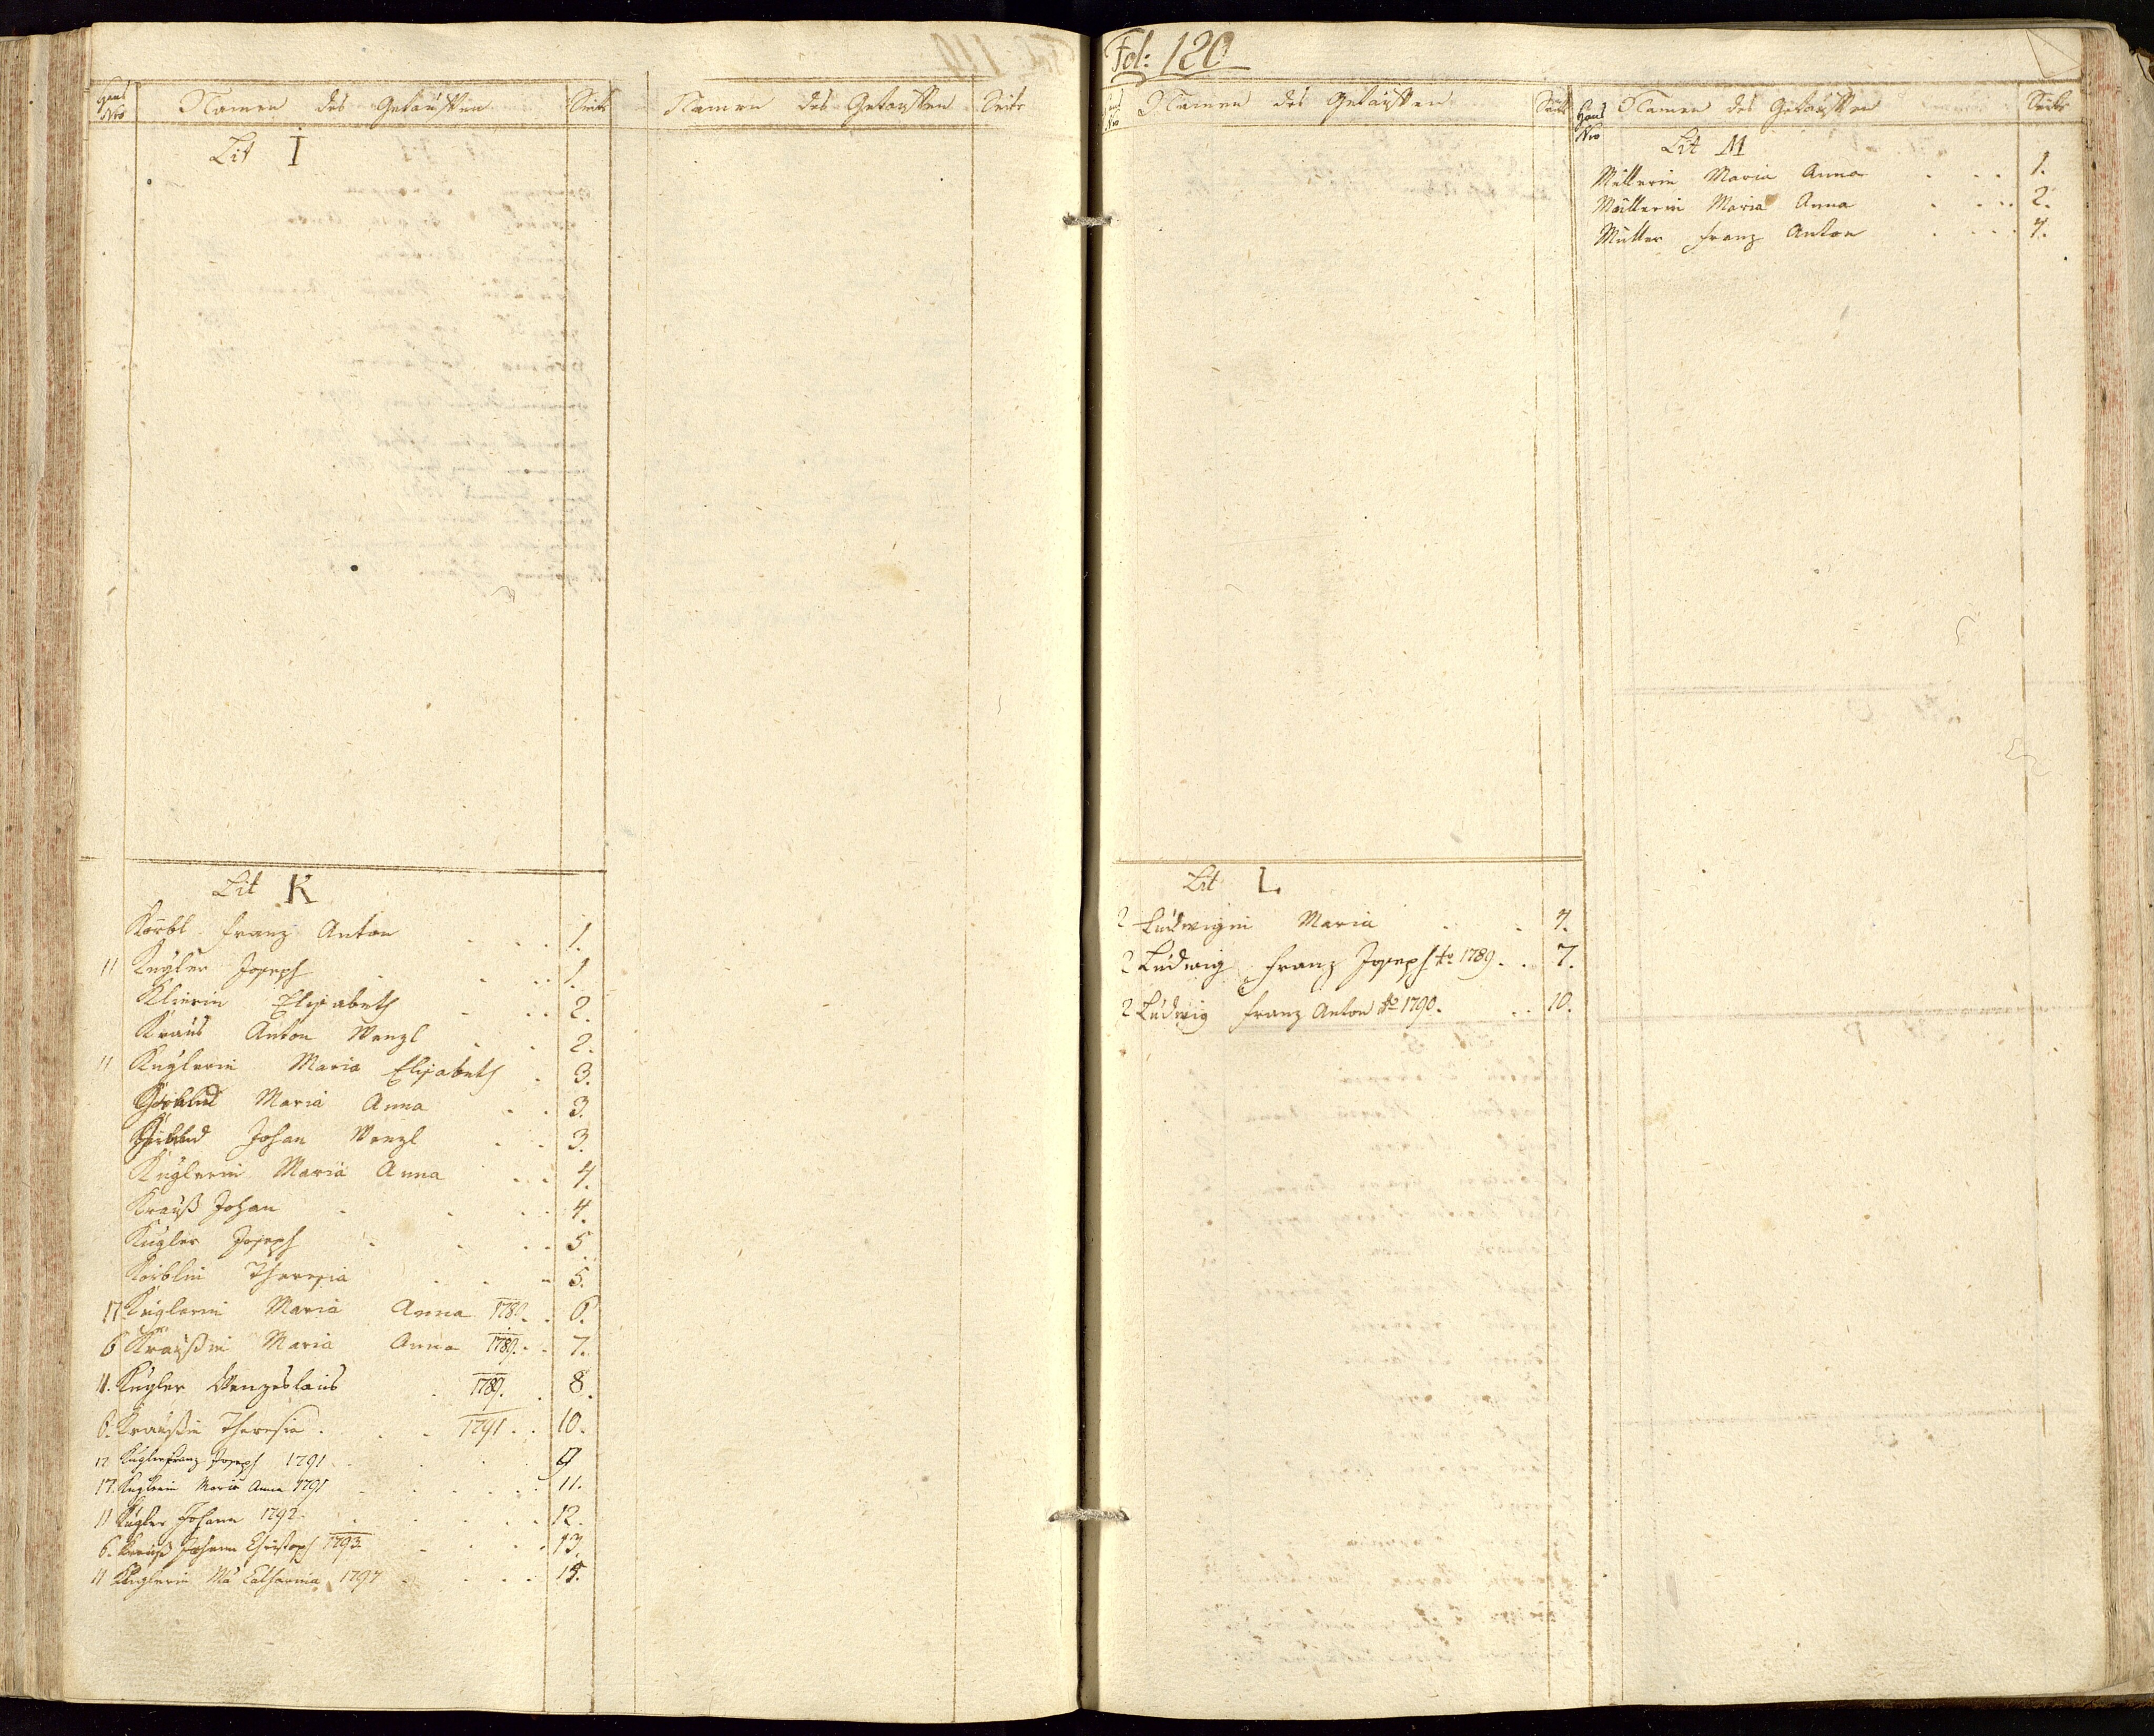 Haus Nro Namen des Getauften Seite Namen des Getauften Seite
Lit I
Lit K
Körbl Franz Anton 1.
11 Kugler Joseph 1.
Klierin Elisabeth 2.
Kraus Anton Wenzl 2.
11 Kuglerin Maria Elisabeth 3.
Maria Anna 3.
Johan Wenzl 3.
Kuglerin Maria Anna 4.
Krauß Johan 4.
Kugler Joseph 5
Körblin Theresia 5.
17 Kuglerin Maria Anna 1789. 6.
6 Kraußin Maria Anna 1789. 7.
11. Kugler Wenzeslaus 1789. 8.
6. Kraußin Theresia 1791 10.
12 Kugler Franz Joseph 1791 9
17. Kuglerin Maria Anna 1791 11.
11 Kugler Johann 1792 12.
6. Krauß Johann Christoph 1793 13.
11 Kuglerin Ma Catharina 1797 15.
Fol: 120
Haus Nro Namen des Getauften Seite Haus Nro Namen des Getauften Seite
Lit L
2 Ludwigin Maria 4.
2 Ludwig Franz Joseph to 1789. 7.
2 Ludwig Franz Anton to 1790. 10.
Lit M
Müllerin Maria Anna 1.
Müllerin Maria Anna 2.
Müller Franz Anton 4.